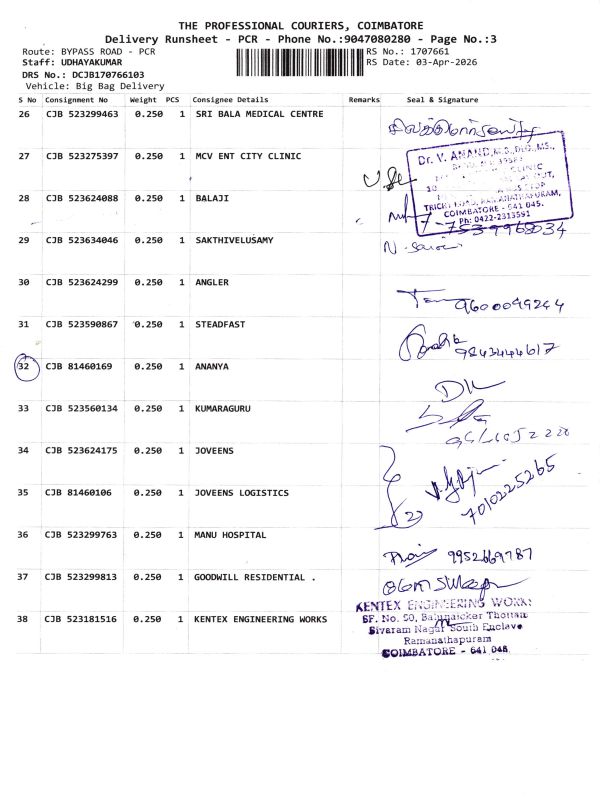 THE PROFESSIONAL COURIERS, COIMBATORE
Delivery Runsheet - PCR - Phone No.:9047080280 - Page No.:3
Route: BYPASS ROAD - PCR RS No.: 1707661
Staff: UDHAYAKUMAR RS Date: 03-Apr-2026
DRS No.: DCJB170766103
Vehicle: Big Bag Delivery
S No Consignment No Weight PCS Consignee Details Remarks Seal & Signature
26 CJB 523299463 0.250 1 SRI BALA MEDICAL CENTRE
27 CJB 523275397 0.250 1 MCV ENT CITY CLINIC
Dr. V. ANAND, M.S., DLO., MS.,
CLINIC
TRICHY ROAD, RAMANATHAPURAM,
COIMBATORE - 641 045.
Ph: 0422-2313591
28 CJB 523624088 0.250 1 BALAJI
7539968034
29 CJB 523634046 0.250 1 SAKTHIVELUSAMY
30 CJB 523624299 0.250 1 ANGLER
9600049244
31 CJB 523590867 0.250 1 STEADFAST
9843444617
32 CJB 81460169 0.250 1 ANANYA
33 CJB 523560134 0.250 1 KUMARAGURU
34 CJB 523624175 0.250 1 JOVEENS
7010225265
35 CJB 81460106 0.250 1 JOVEENS LOGISTICS
36 CJB 523299763 0.250 1 MANU HOSPITAL
9952669787
37 CJB 523299813 0.250 1 GOODWILL RESIDENTIAL .
38 CJB 523181516 0.250 1 KENTEX ENGINEERING WORKS
KENTEX ENGINEERING WORKS
SF. No. 50, Balunaicker Thottam
Sivaram Nagar South Enclave
Ramanathapuram
COIMBATORE - 641 045.